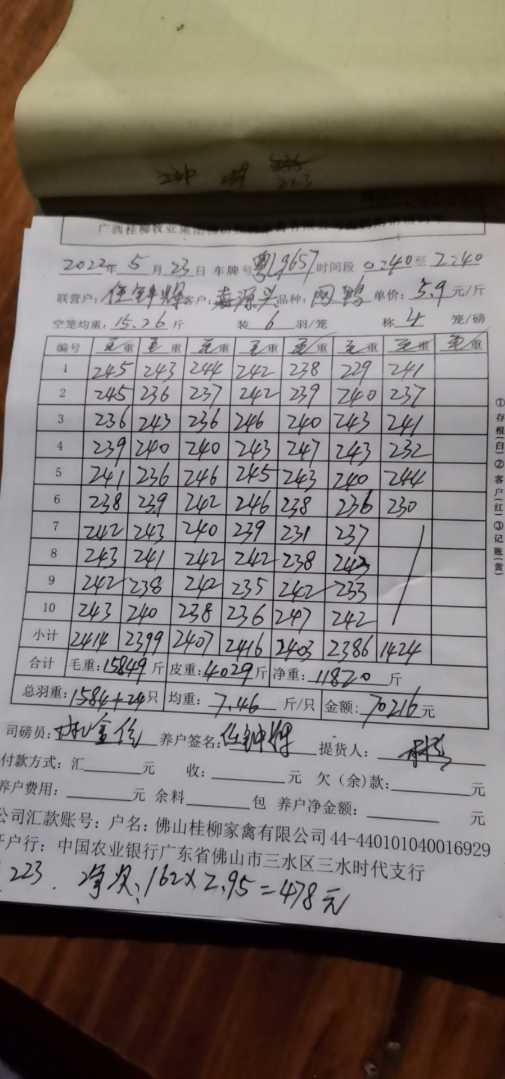 2022年5月23日 车牌号粤L9657 时间段0:240至2:240
联营户: 伍钟辉 客户: 源兴 品种: 网鸭 单价: 5.9元/斤
空笼均重: 15.26斤 装6羽/笼 称4笼/磅
编号 毛重 毛重 毛重 毛重 毛重 毛重 毛重 毛重
1 245 243 244 242 238 229 241
2 245 236 237 242 239 240 237
3 236 243 236 246 240 243 241
4 239 240 240 243 247 243 232
5 241 236 246 245 243 240 244
6 238 239 242 246 238 236 230
7 242 243 240 239 231 237
8 243 241 242 242 238 243
9 242 238 242 235 242 233
10 243 240 238 236 247 242
小计 2414 2399 2407 2416 2403 2386 1424
合计 毛重: 15849斤 皮重: 4029斤 净重: 11820斤
总羽重: 1584+24只 均重: 7.46斤/只 金额: 70216元
司磅员: 养户签名: 伍钟辉 提货人:
付款方式: 汇 元 收: 元 欠(余)款: 元
养户费用: 元 余料 包 养户净金额: 元
公司汇款账号: 户名: 佛山桂柳家禽有限公司 44-440101040016929
开户行: 中国农业银行广东省佛山市三水区三水时代支行
223. 162×2.95=478元
①存根(白)②客户(红)③记账(黄)